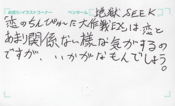 地獄SEEK
恋のらんぴかいた大作戦EXは恋と
あまり関係ない様な気がするの
ですが、いかがなもんでしょう。